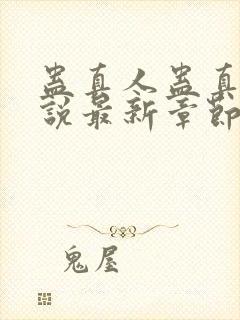 蛊真人蛊真
說最新章節
鬼屋